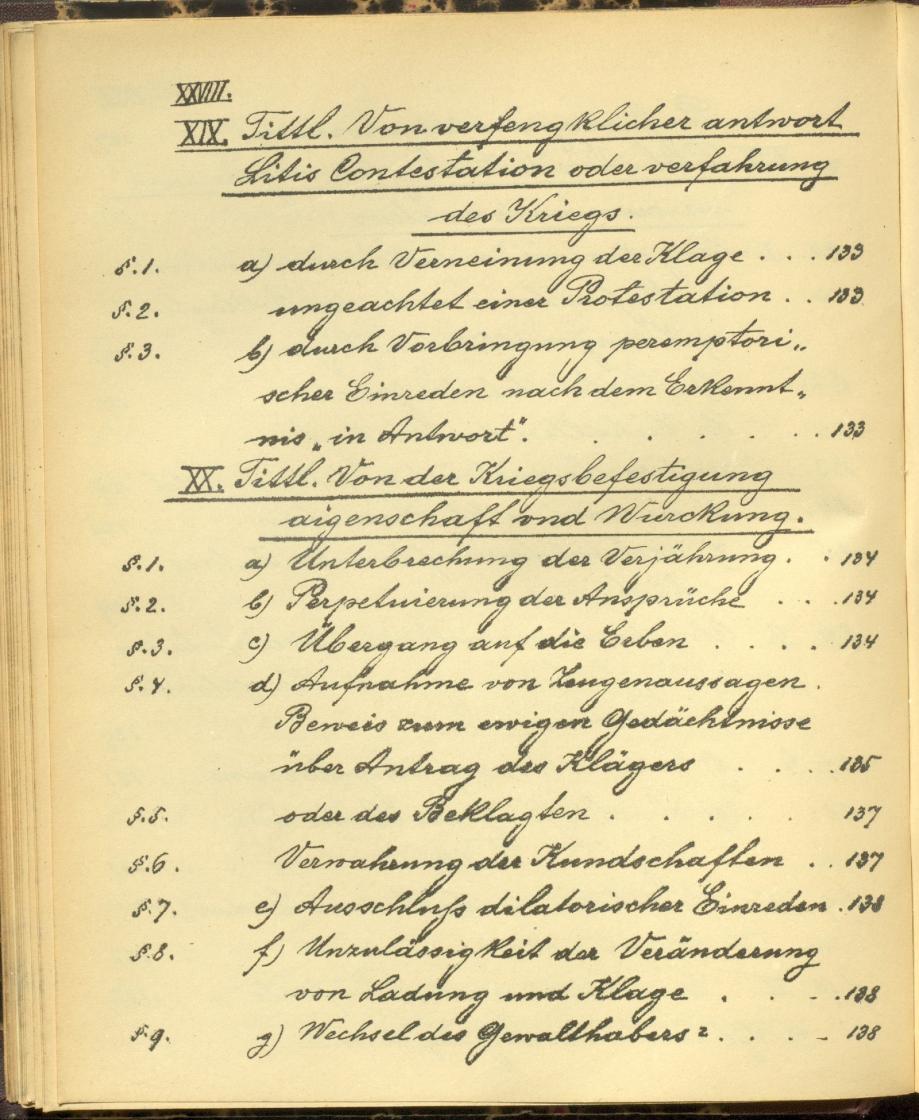 XXVIII.
XIX. Tittl. Von verfengklicher antwort
Litis Contestation oder verfahrung
des Kriegs.
§.1. a) durch Verneinung der Klage . . . 133
§.2. ungeachtet einer Protestation . . 133
§.3. b) durch Vorbringung peremptori„
scher Einreden nach dem Erkennt„
nis „in Antwort". . . . . . . 133
XX. Tittl. Von der Kriegsbefestigung
aigenschaft vnd Wurckung.
§.1. a) Unterbrechung der Verjährung. . 134
§.2. b) Perpetuierung der Ansprüche . . . 134
§.3. c) Übergang auf die Erben . . . . 134
§.4. d) Aufnahme von Zeugenaussagen .
Beweis zum ewigen Gedächtnisse
über Antrag des Klägers . . . . 135
§.5. oder des Beklagten . . . . . 137
§.6. Verwahrung der Kundschaften . . 137
§.7. e) Ausschluß dilatorischer Einreden . 138
§.8. f) Unzulässigkeit der Veränderung
von Ladung und Klage . . . . 138
§.9. g) Wechsel des Gewalthabers . . . . 138